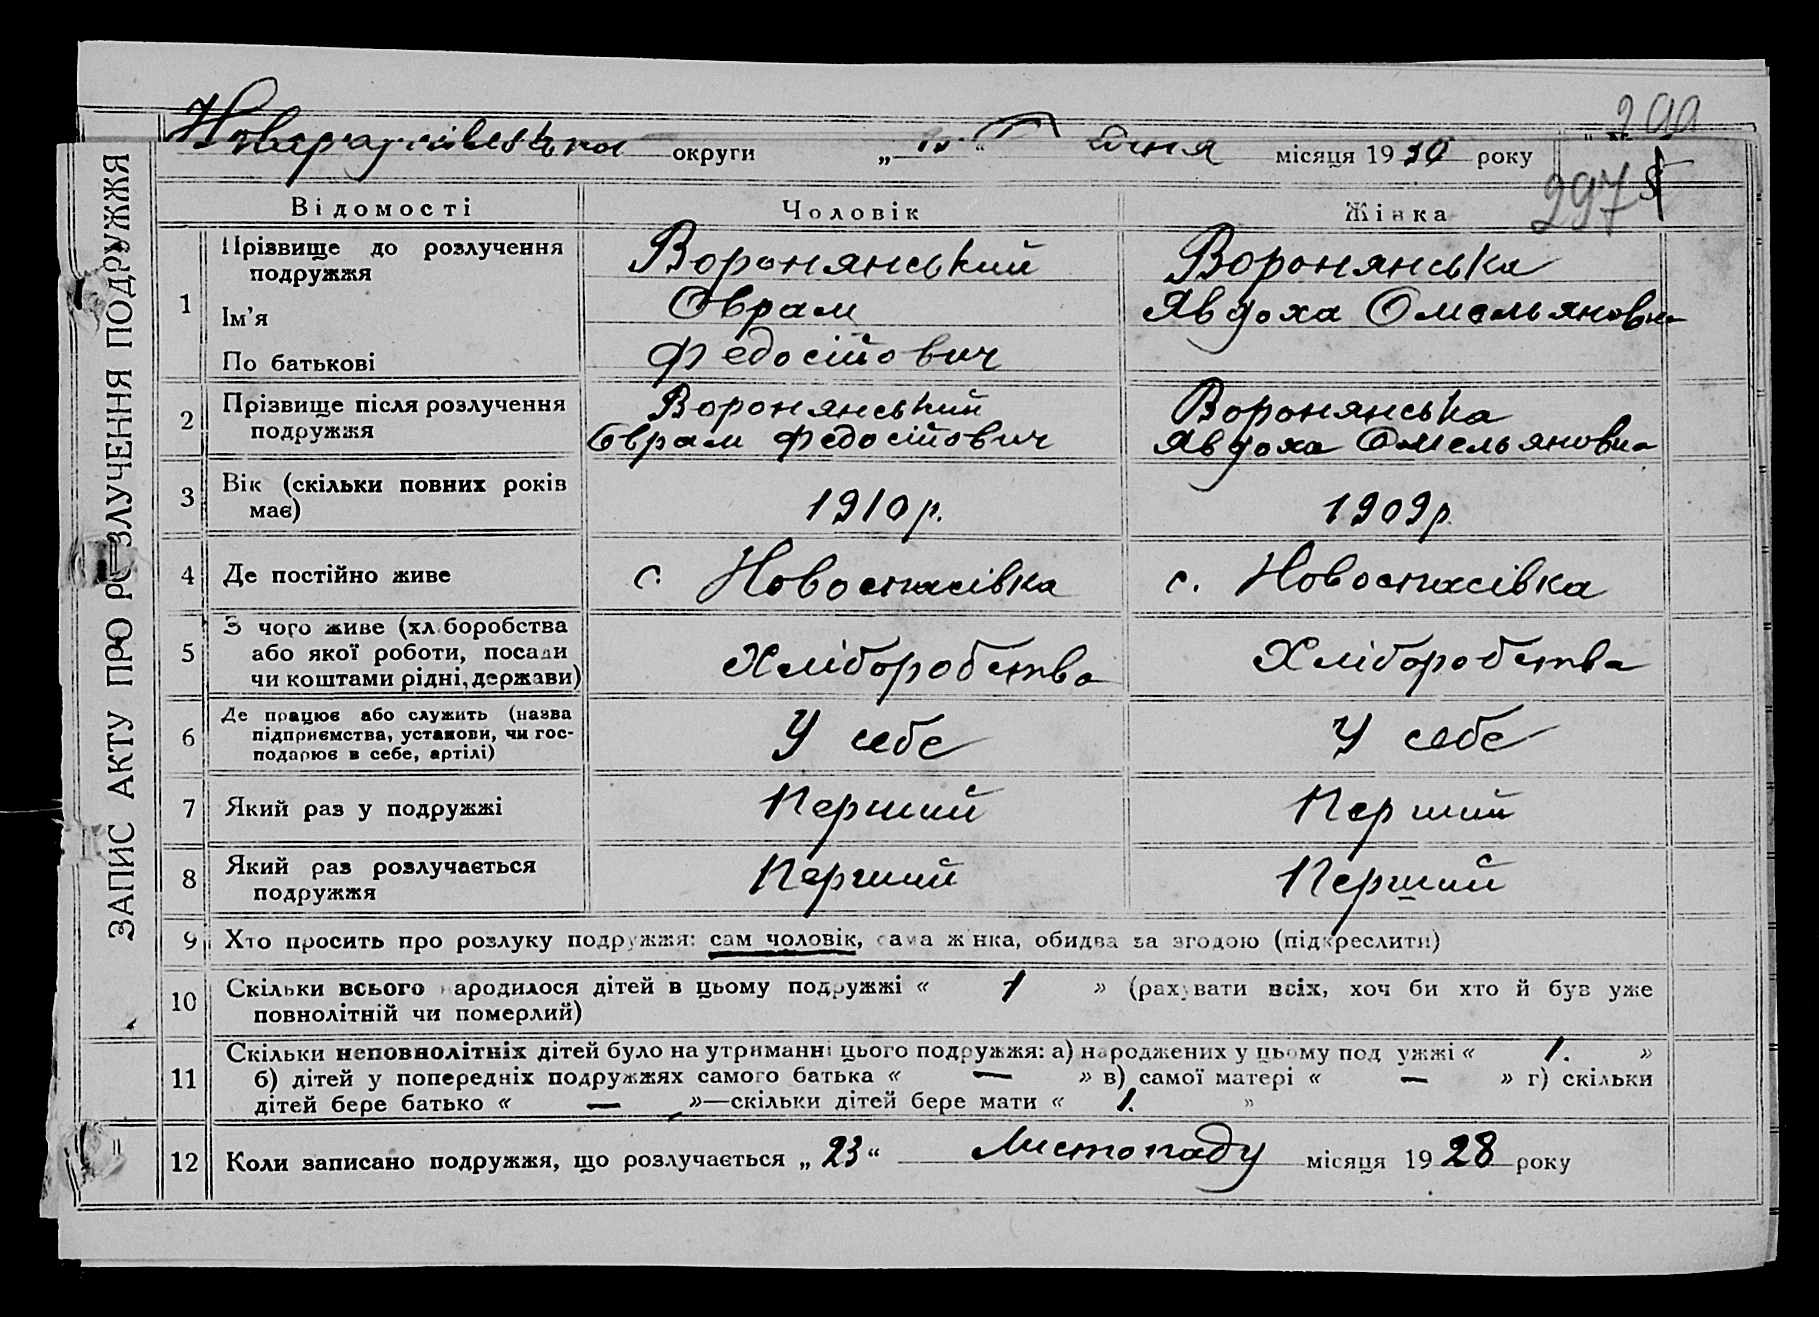 округи „ 15 “ січня місяця 1930 року
297
ЗАПИС АКТУ ПРО РОЗЛУЧЕННЯ ПОДРУЖЖЯ
Відомості Чоловік Жінка
1 Прізвище до розлучення подружжя Воронянський Воронянська
Ім'я Оврам Явдоха Омельяновна
По батькові Федосійович
2 Прізвище після розлучення Воронянський Воронянська
подружжя Оврам Федосійович Явдоха Омельяновна
3 Вік (скільки повних років
має) 1910 р. 1909 р
4 Де постійно живе с. Новоспасівка с. Новоспасівка
5 З чого живе (хліборобства
або якої роботи, посади Хліборобства Хліборобства
чи коштами рідні, держави)
6 Де працює або служить (назва
підприємства, установи, чи гос- У себе У себе
подарює в себе, артілі)
7 Який раз у подружжі Перший Перший
8 Який раз розлучається Перший Перший
подружжя
9 Хто просить про розлуку подружжя: сам чоловік, сама жінка, обидва за згодою (підкреслити)
10 Скільки всього народилося дітей в цьому подружжі « 1 » (рахувати всіх, хоч би хто й був уже
повнолітній чи померлий)
11 Скільки неповнолітніх дітей було на утриманні цього подружжя: а) народжених у цьому подружжі « 1. »
б) дітей у попередніх подружжях самого батька « — » в) самої матері « — » г) скільки
дітей бере батько « — »—скільки дітей бере мати « 1. »
12 Коли записано подружжя, що розлучається „ 23 “ Листопаду місяця 1928 року